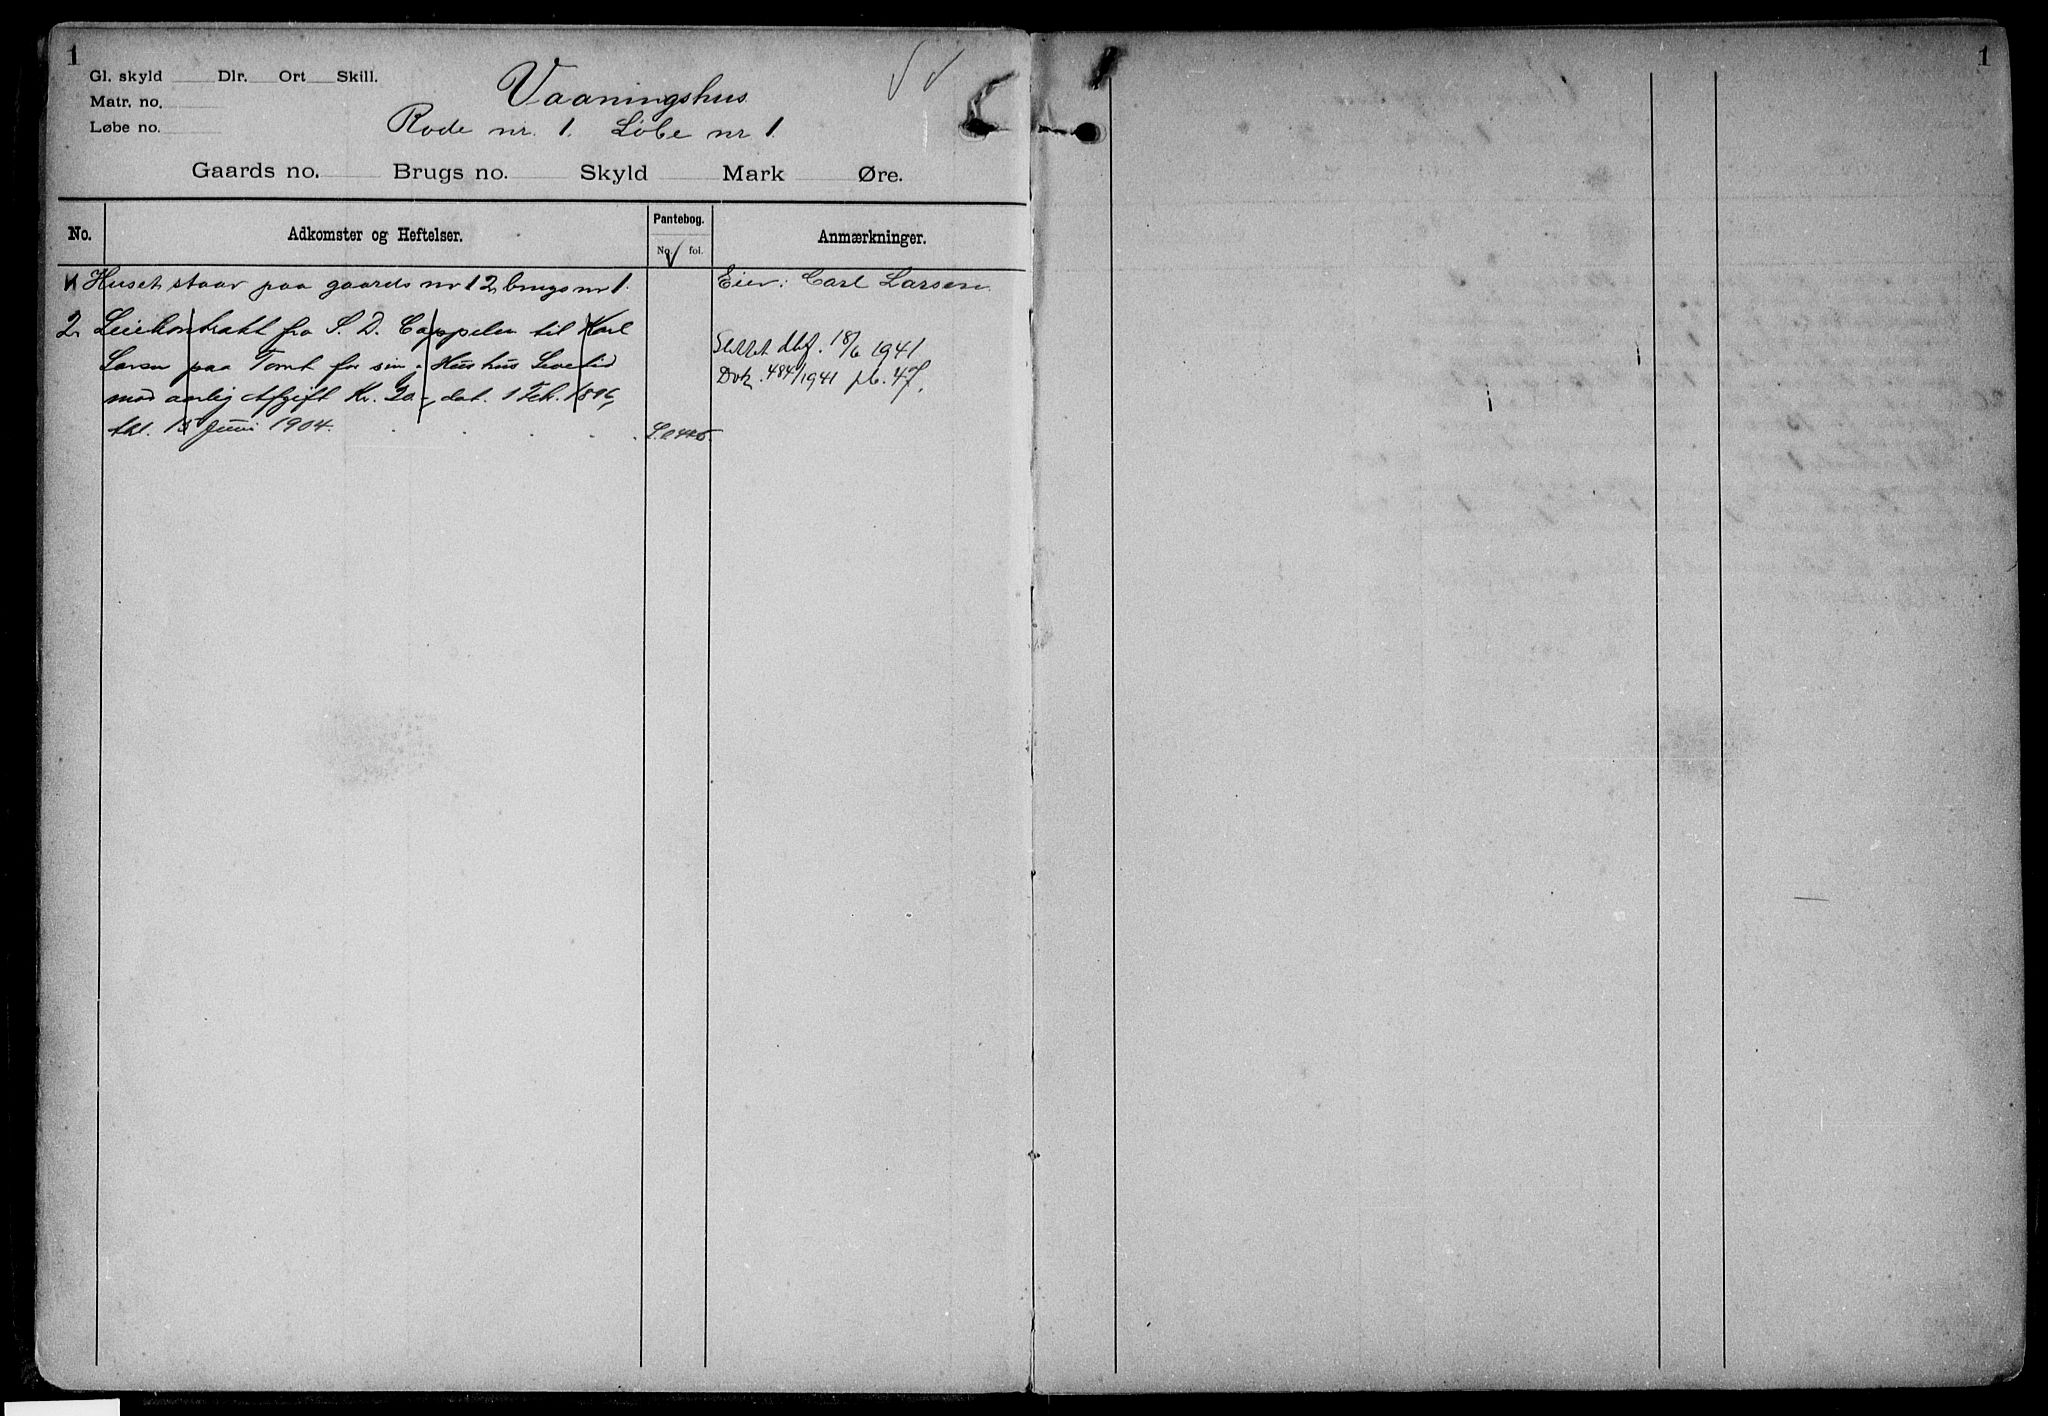 1
Gl. skyld Dlr. Ort Skill.
Matr. no.
Løbe no.
Vaaningshus
Rode nr. 1. Løbe nr 1.
Gaards no. Brugs no. Skyld Mark Øre.
No. Adkomster og Heftelser. Pantebog. Anmærkninger.
No. fol.
1 Huset staar paa gaards nr 12 brugs nr 1. Eier: Carl Larsen
2 Leiekontrakt fra S. D. Cappelen til Karl
Larsen paa Tomt for sin Hustrus Levetid
mod aarlig Afgift Kr. 20-, dat. 1 Feb. 1896,
thl. 15 Juni 1904.
Slettet dbf. 18/6 1941
Dok. 484/1941 pb. 47.
1